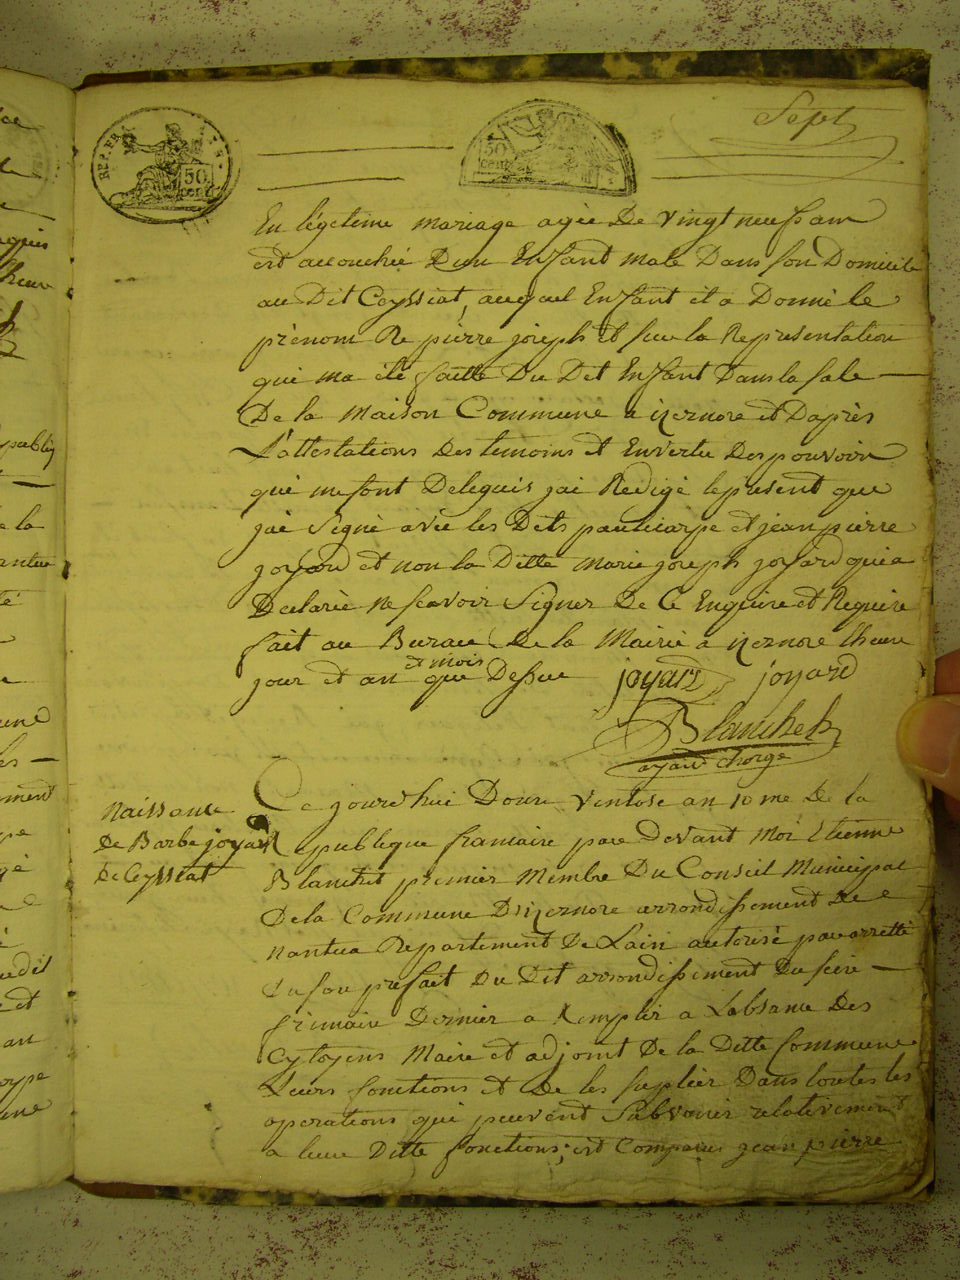 Sept
REP. FRA
50
cent
50
cent
En légetime mariage agée De vingt neuf ans
est accouchée D'un Enfant male Dans son Domicile
au Dit Ceyssiat, auquel Enfant il a Donné le
prénom De pierre joseph et sur la Representation
qui ma été faitte Du Dit Enfant Dans la sale
De la Maison Commune a izernore et Daprès
L'attestations Des temoins et En vertu Des pouvoirs
qui me sont Delegués jai Redigé le present que
jai Signé avec les Dits et jean pierre
joyard et non la Ditte marie joseph joyard qui a
Declarée ne scavoir Signer De Ce Enquire et Require
fait au Bureau De la Mairie a izernore l'heure
jour et an et mois que Dessus joyard joyard
Blanchet
ayant charge
Naissance
de Barbe joyard
De Ceyssiat
Ce jourd'hui Douze Ventose an 10 me De la
Republique francaise par Devant Moi Etienne
Blanchet premier Membre Du Conseil Municipal
De la Commune D'izernore arrondissement De
nantua Departement De Lain autorisé par arretté
Du sou prefait Du Dit arrondissement Du
frimaire Dernier a Remplir a Labsance Des
Cytoyens Maire et adjoint De la Ditte Commune
Leurs fonctions et De les suplier Dans toutes les
operations qui peuvent Subvenir relativement
a leur Ditte fonctions; est Comparus jean pierre